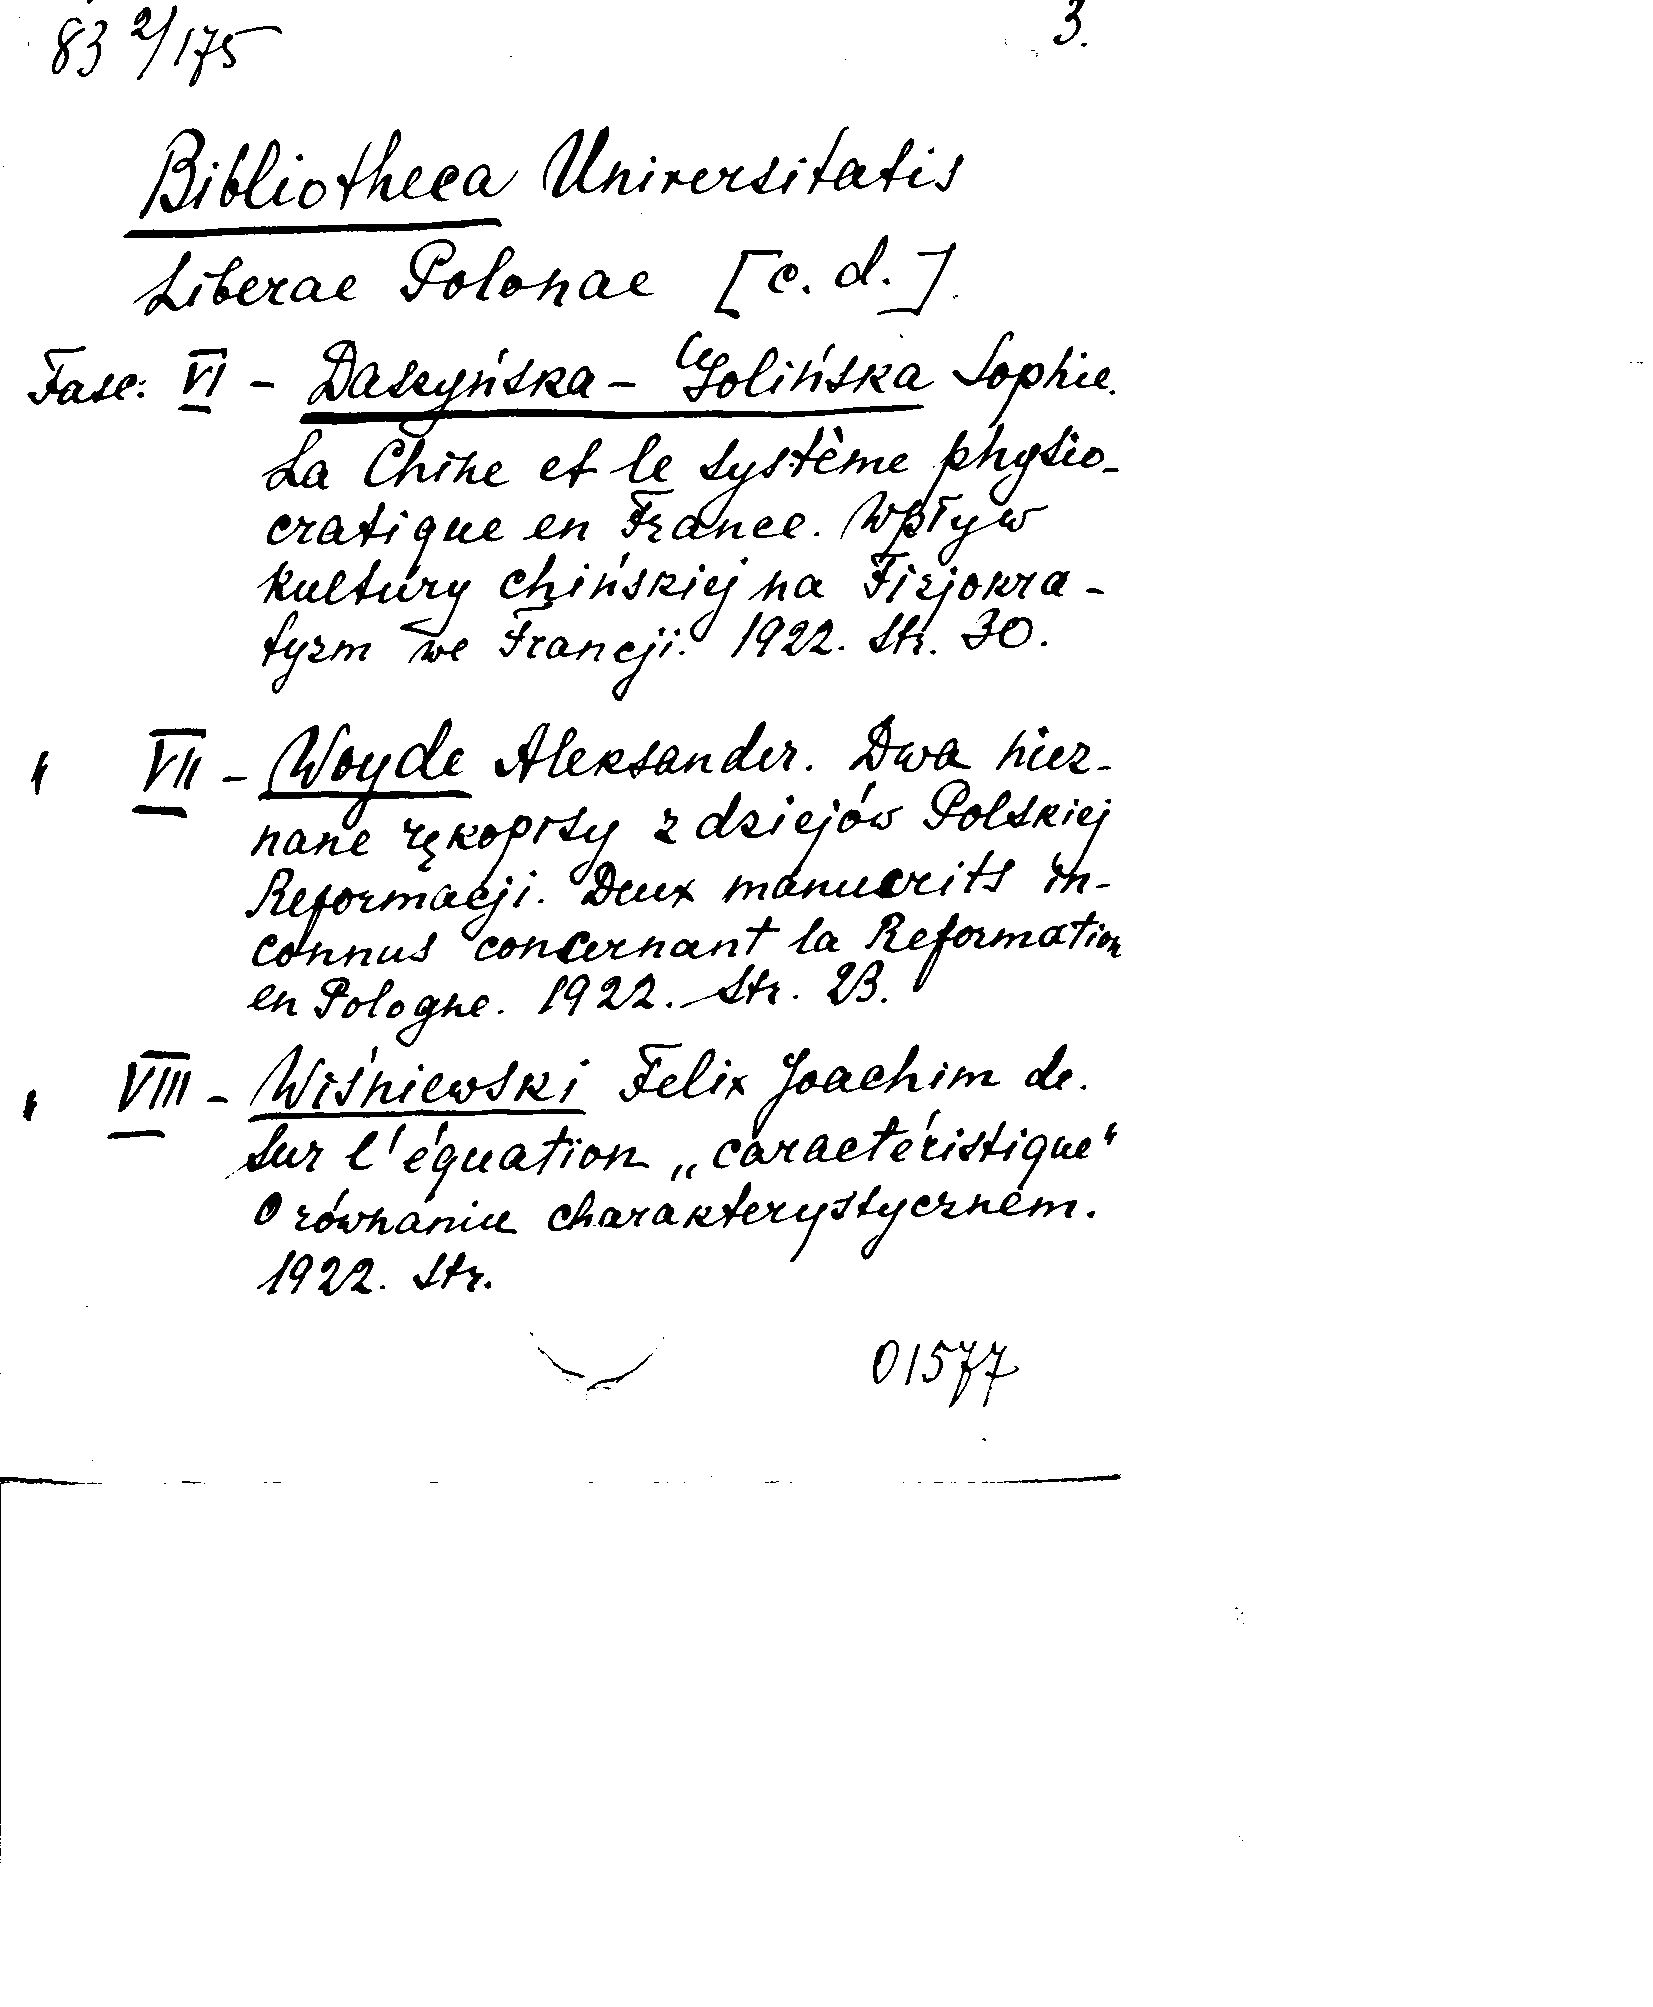 83 2/175
3.
Bibliotheca Universitatis
Liberae Polonae [c. d.]
Fasc. VI - Daszyńska - Golińska Sophie.
La Chine et le système physio-
cratique en France. Wpływ
kultury chińskiej na Fizjokra-
tyzm we Francji. 1922. Str. 30.
" VII - Woyde Aleksander. Dwa niez-
nane rękopisy z dziejów Polskiej
Reformacji. Deux manuscrits in-
connus concernant la Reformation
en Pologne. 1922. Str. 23.
" VIII - Wiśniewski Felix Joachim de.
Sur l'équation „caractéristique"
O równaniu charakterystycznem.
1922. Str.
01577